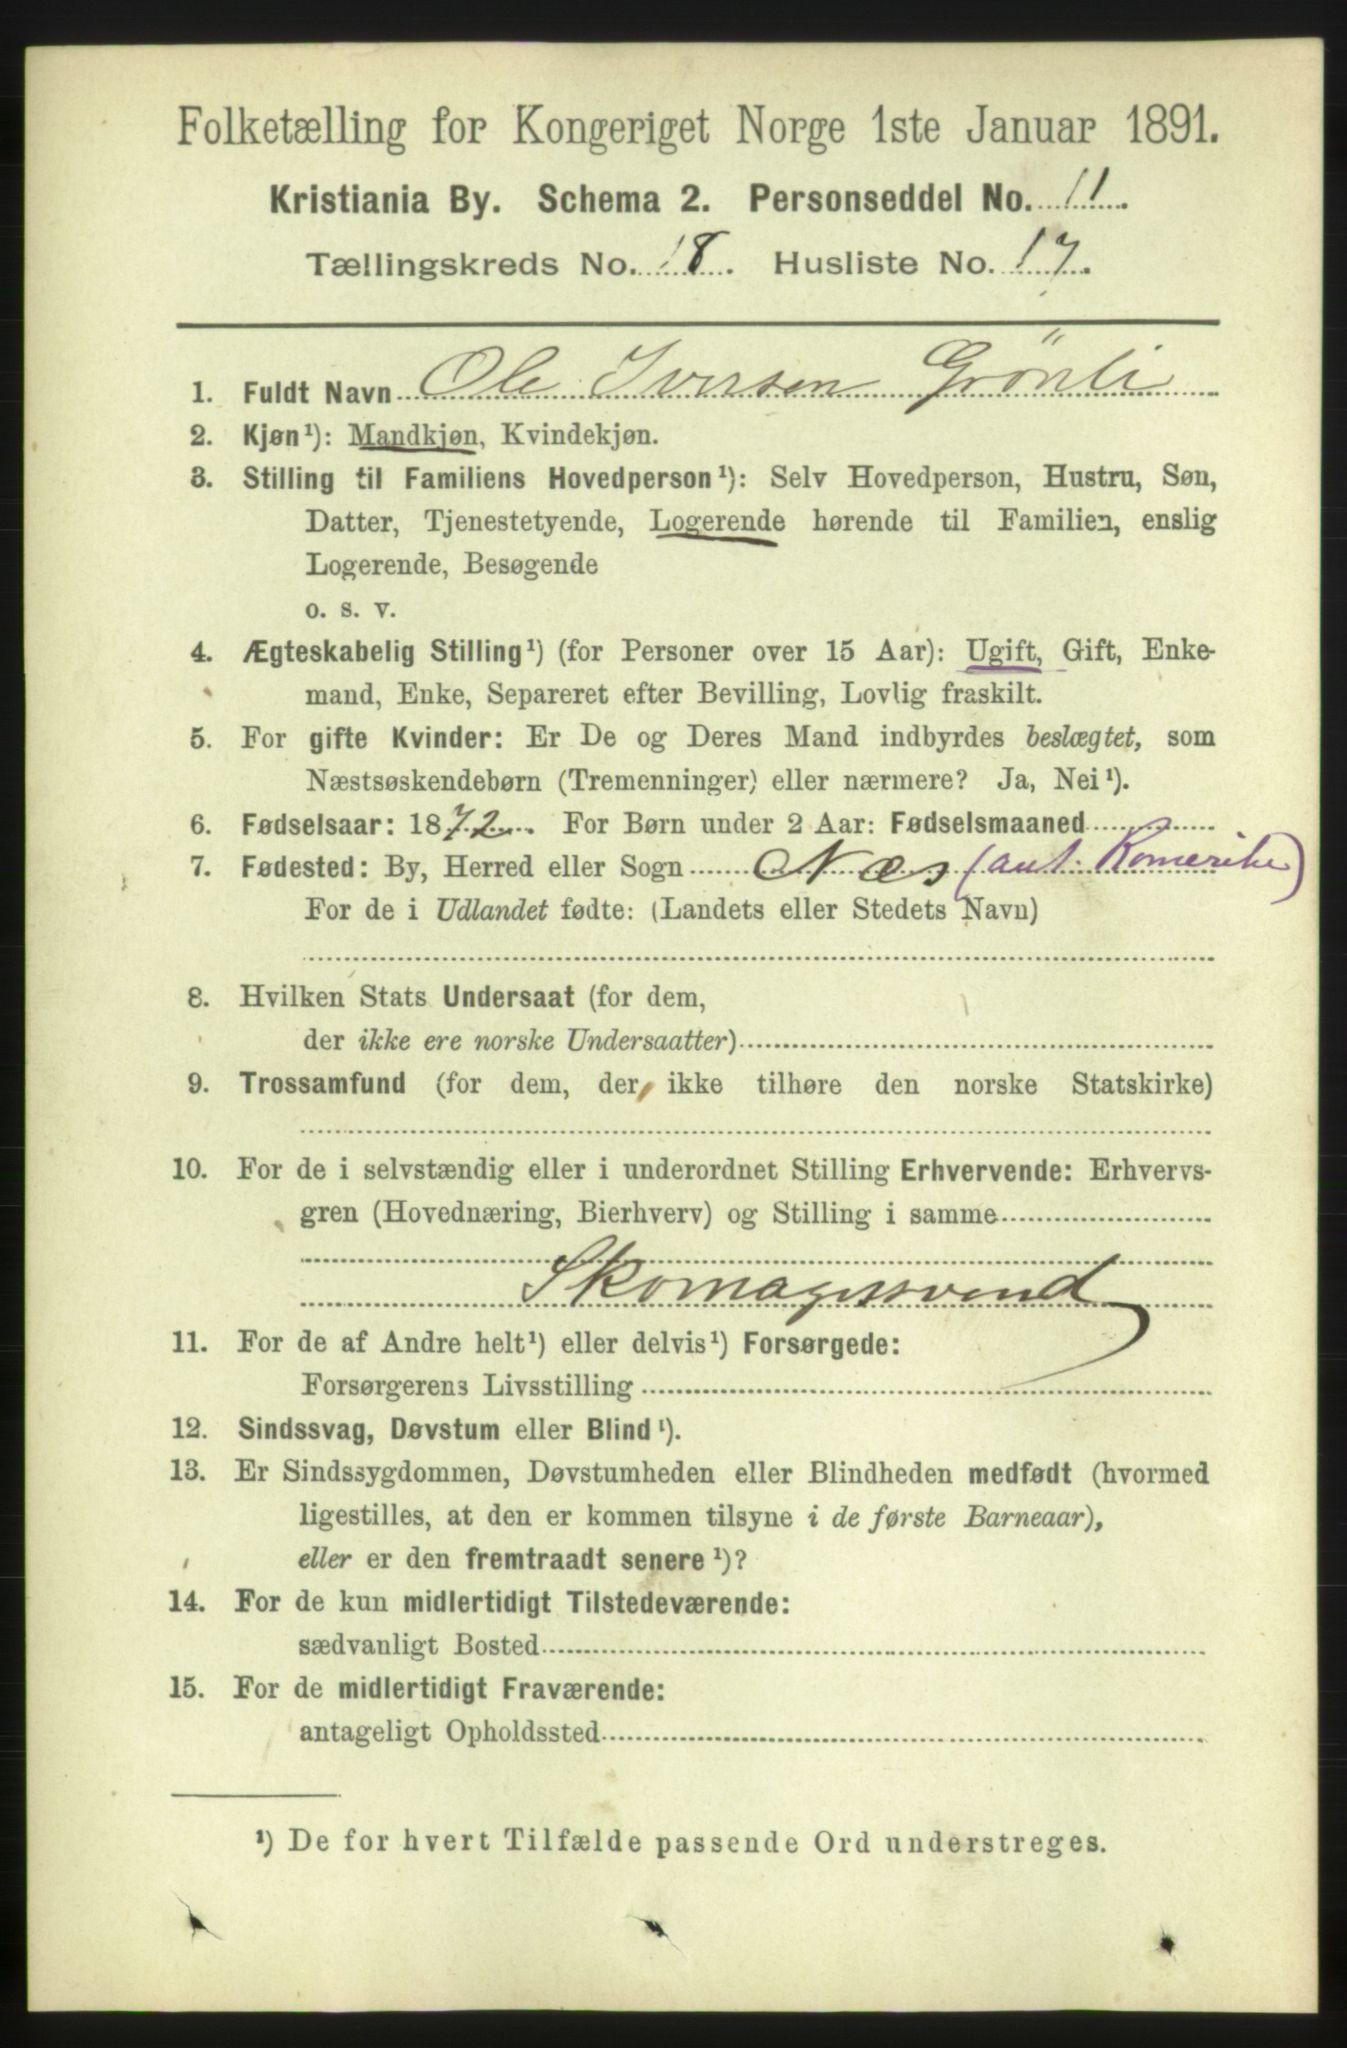 Folketælling for Kongeriget Norge 1ste Januar 1891.
Kristiania By. Schema 2. Personseddel No. 11.
Tællingskreds No. 18. Husliste No. 17.
1. Fuldt Navn Ole Iversen Grönli
2. Kjøn¹): Mandkjøn, Kvindekjøn.
3. Stilling til Familiens Hovedperson¹): Selv Hovedperson, Hustru, Søn,
Datter, Tjenestetyende, Logerende hørende til Familien, enslig
Logerende, Besøgende
o. s. v.
4. Ægteskabelig Stilling¹) (for Personer over 15 Aar): Ugift, Gift, Enke-
mand, Enke, Separeret efter Bevilling, Lovlig fraskilt.
5. For gifte Kvinder: Er De og Deres Mand indbyrdes beslægtet, som
Næstsøskendebørn (Tremenninger) eller nærmere? Ja, Nei¹).
6. Fødselsaar: 1872. For Børn under 2 Aar: Fødselsmaaned
7. Fødested: By, Herred eller Sogn Næs (ant. Romerike)
For de i Udlandet fødte: (Landets eller Stedets Navn)
8. Hvilken Stats Undersaat (for dem,
der ikke ere norske Undersaatter)
9. Trossamfund (for dem, der ikke tilhøre den norske Statskirke)
10. For de i selvstændig eller i underordnet Stilling Erhvervende: Erhvervs-
gren (Hovednæring, Bierhverv) og Stilling i samme
Skomagersvend
11. For de af Andre helt¹) eller delvis¹) Forsørgede:
Forsørgerens Livsstilling
12. Sindssvag, Døvstum eller Blind¹).
13. Er Sindssygdommen, Døvstumheden eller Blindheden medfødt (hvormed
ligestilles, at den er kommen tilsyne i de første Barneaar),
eller er den fremtraadt senere¹)?
14. For de kun midlertidigt Tilstedeværende:
sædvanligt Bosted
15. For de midlertidigt Fraværende:
antageligt Opholdssted
¹) De for hvert Tilfælde passende Ord understreges.